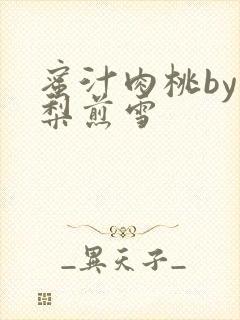 蜜汁肉桃by
梨煎雪
_異天子_